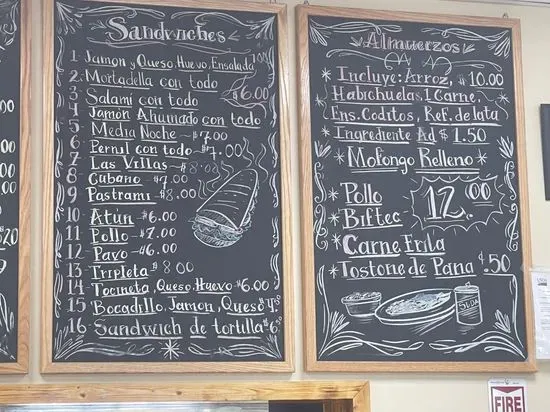 Sandwiches
1 Jamon y Queso, Huevo, Ensalada
2 Mortadella con todo
3 Salami con todo $6.00
4 Jamón Ahumado con todo
5 Media Noche $7.00
6 Pernil con todo $7.00
7 Las Villas $8.00
8 Cubano $7.00
9 Pastrami $8.00
10 Atún $6.00
11 Pollo $7.00
12 Pavo $6.00
13 Tripleta $8.00
14 Tocineta, Queso, Huevo $6.00
15 Bocadillo, Jamon, Queso
16 Sandwich de tortilla $6.00
Almuerzos
* Incluye: Arroz, $10.00
Habichuelas, 1 Carne,
Ens. Coditos, Ref. de lata
* Ingrediente Ad $1.50
* Mofongo Relleno *
* Pollo
* Biftec
12.00
* Carne Frita
* Tostone de Pana $.50
SODA
FIRE